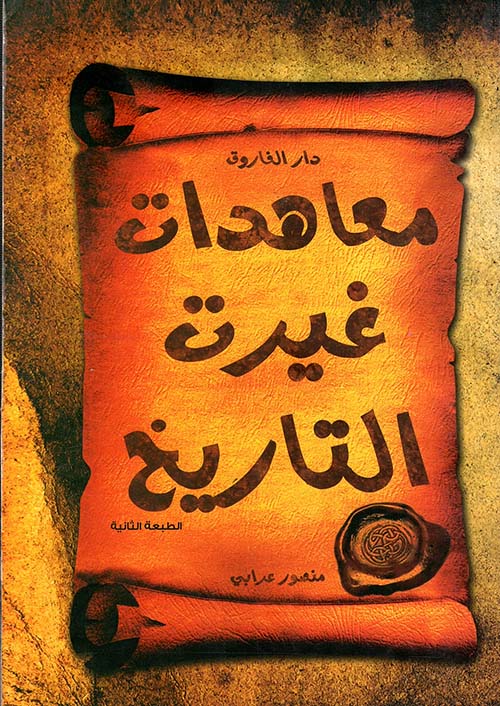 دار الفاروق
معاهدات
غيرت
التاريخ
الطبعة الثانية
منصور عرابي